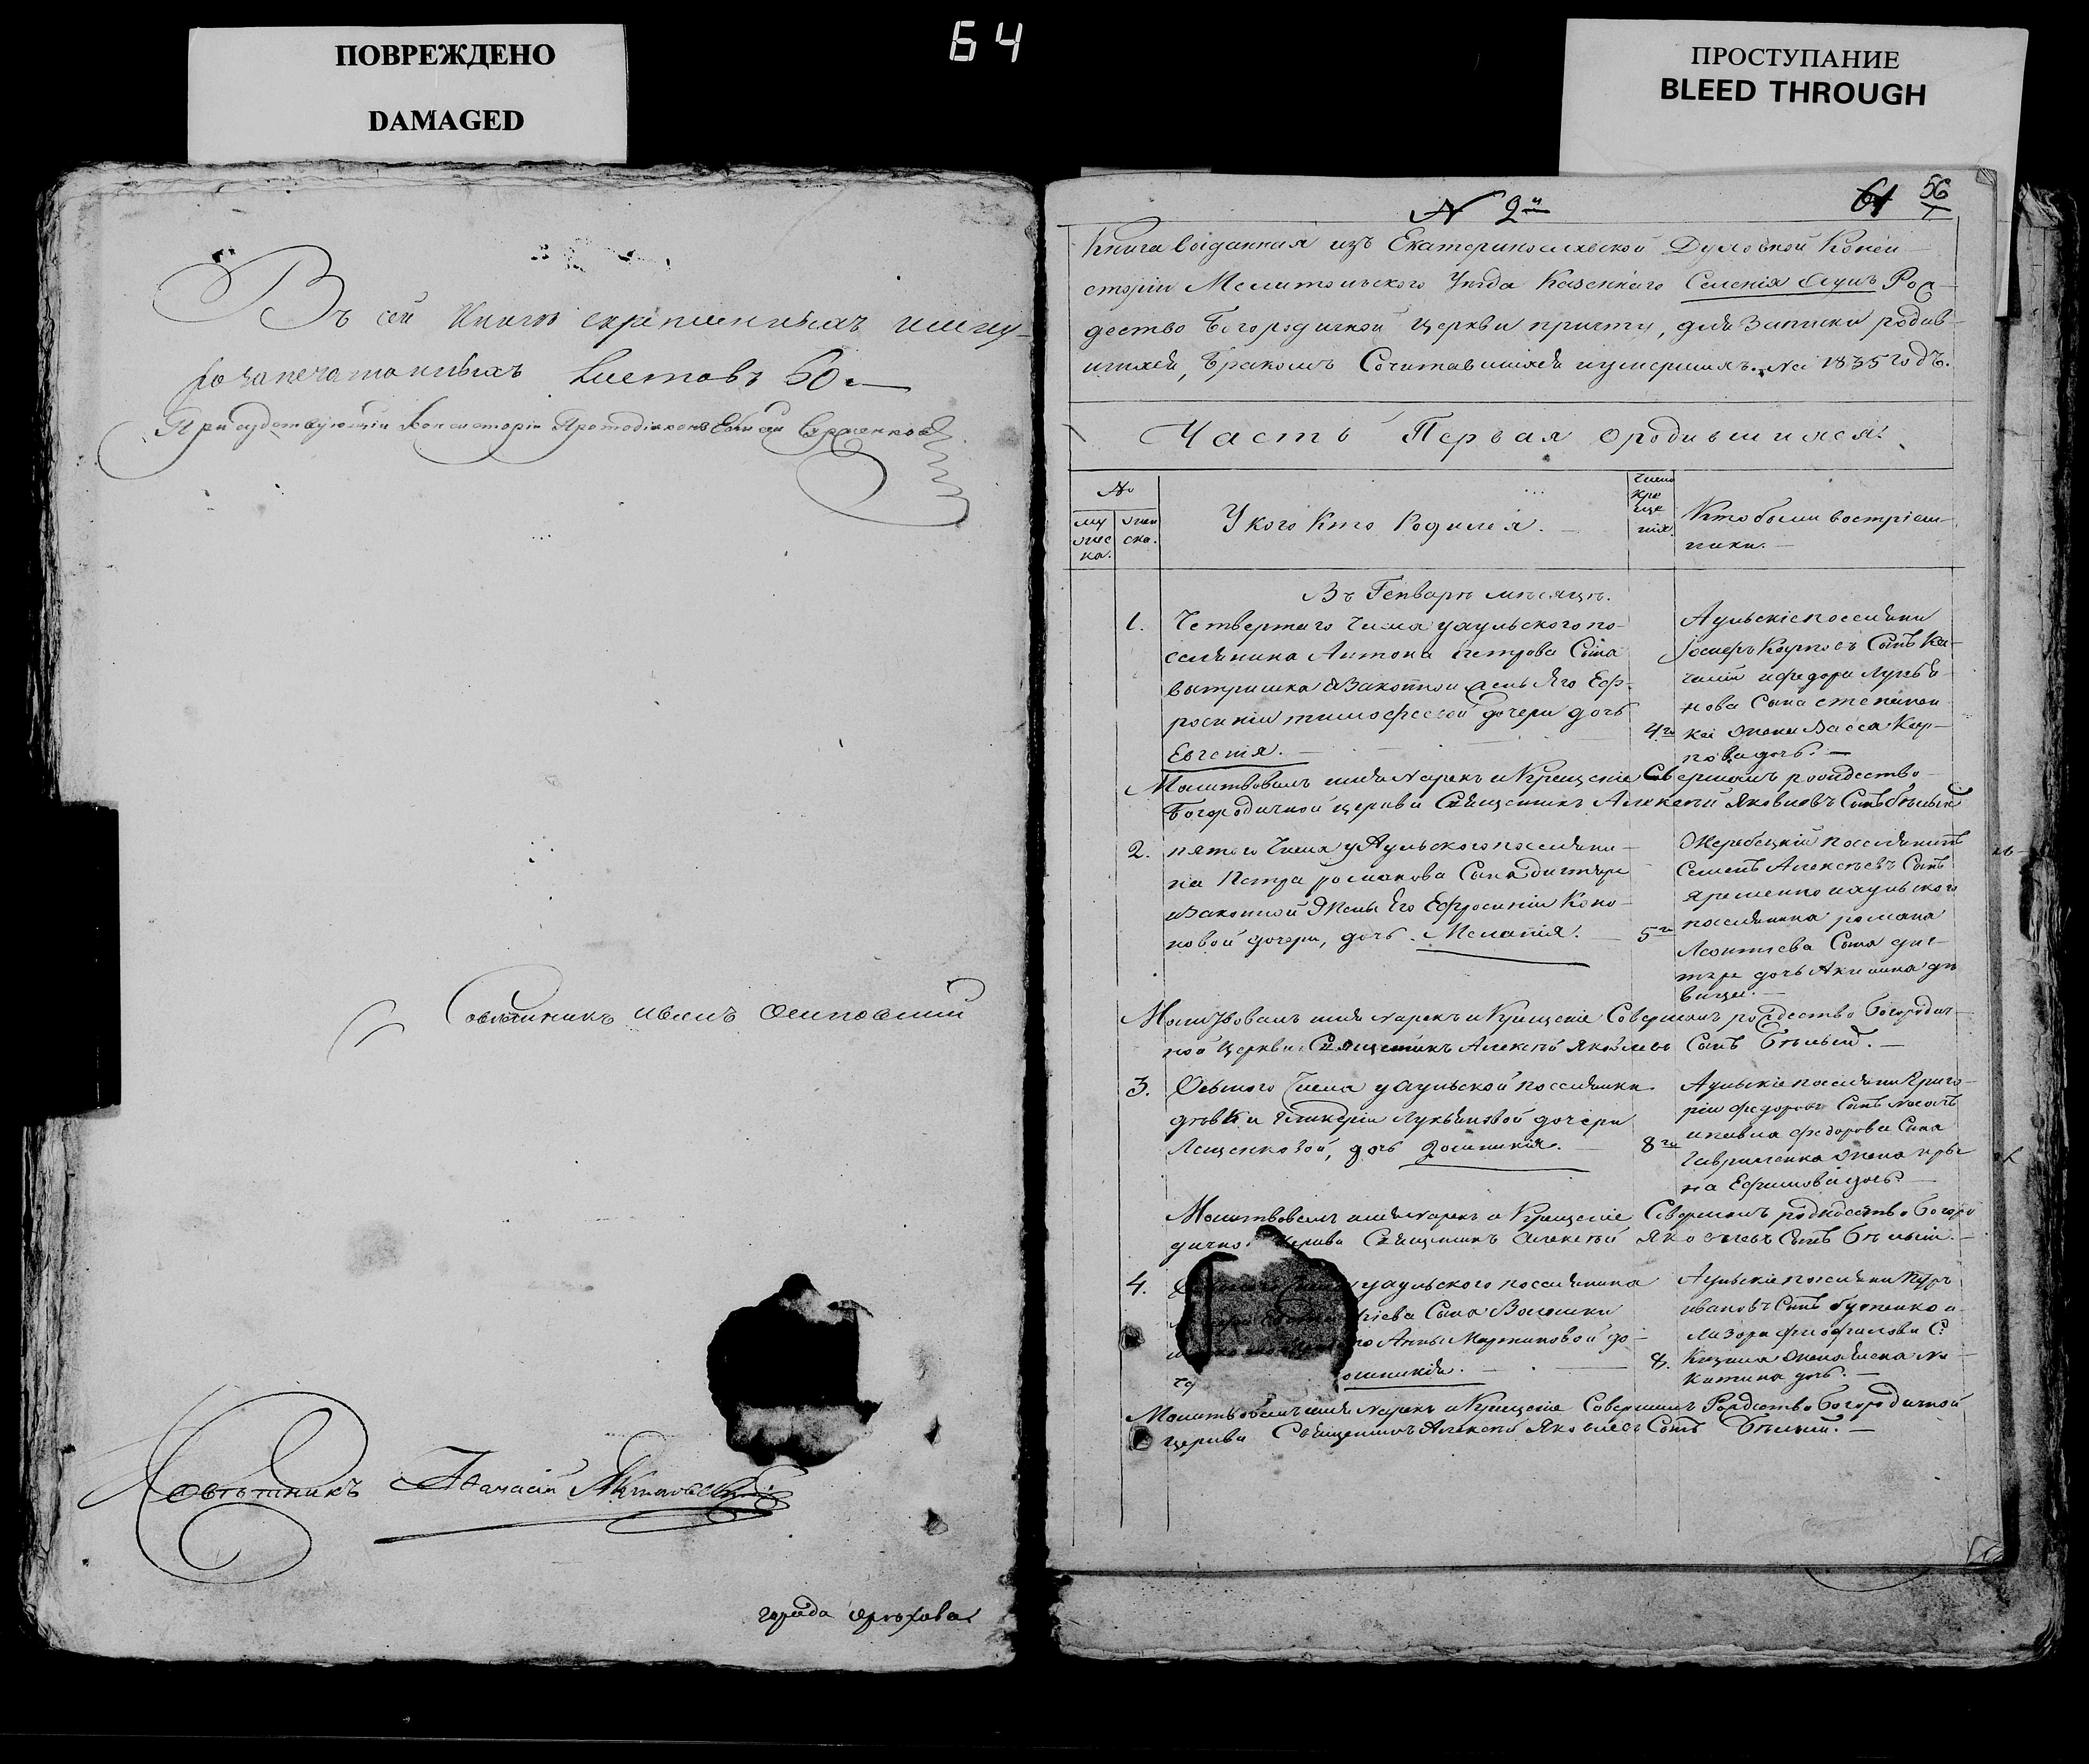 ПОВРЕЖДЕНО
DAMAGED
64
ПРОСТУПАНИЕ
BLEED THROUGH
Въ сей Книгѣ скрепленныхъ шнуро
запечатанныхъ листовъ 60.
Присудствующій Консисторіи Протодіаконъ
Совѣтникъ Иванъ Осиповскій
Совѣтникъ Афанасій
города Орѣхова
№ 2й
61 56
Книга выданная изъ Екатеринославской Духовной Конси
сторіи Мелитопольского Уѣзда Казеннаго Селенія Аулъ Рож
дество Богородичной церкви причту, для Записки родив
шихся, бракомъ Сочитавшихся и умершихъ. На 1835 годъ.
Часть Первая о родившихся.
№
му жес ка.
жен ска.
У кого кто Родился.
Число Кре ще нія.
Кто были воспріем
ники.
Въ Генварѣ мѣсяцѣ.
1. Четвертаго Числа у аульского по
селянина Антона петрова Сына
и Законной жены Его Еф
росиніи тимофеевой дочери дочь
Евгенія.
4го
Аульскіе поселяни
Карповъ Сынъ
и федора Лукья
нова Сына
жена Васса Кар
пова дочь.
Молитвовалъ имя нарекъ и Крещеніе Совершилъ рождество
Богородичной церкви Священникъ Алексѣй Яковлевъ Сынъ Бѣлый
2. пятого Числа у Аульского поселяни
на Петра романова Сына
и Законной Жены Его Ефросиніи Коно
новой дочери, дочь Меланія.
5го
Жеребецкій поселянинъ
Семенъ Алексѣевъ Сынъ
яременко и аульского
поселянина романа
Леонтіева Сына
дочь Акилина дѣ
вица.
Молитвовалъ имя нарекъ и Крещеніе Совершилъ рождество Богородич
ной Церкви Священникъ Алексѣй Яковлевъ Сынъ Бѣлый.
3. Осьмого Числа у аульской поселянки
дѣвки Гликеріи Лукьяновой дочери
Лещенковой, дочь Домникія.
8го
Аульскіе поселяни Григо
рій федоровъ Сынъ
и павла федорова Сына
Гавриленка жена Ири
на Ефимова дочь.
Молитвовалъ имя нарекъ и Крещеніе Совершилъ рождество Богоро
дичной церкви Священникъ Алексѣй Яковлевъ Сынъ Бѣлый.
4. у аульского поселянина
Сына Волошки
Анны Мартиновой до
8.
Аульскіе поселяни
ивановъ Сынъ
жена
Никитина дочь.
Молитвовалъ имя нарекъ и Крещеніе Совершилъ Рождество Богородичной
церкви Священникъ Алексѣй Яковлевъ Сынъ Бѣлый.